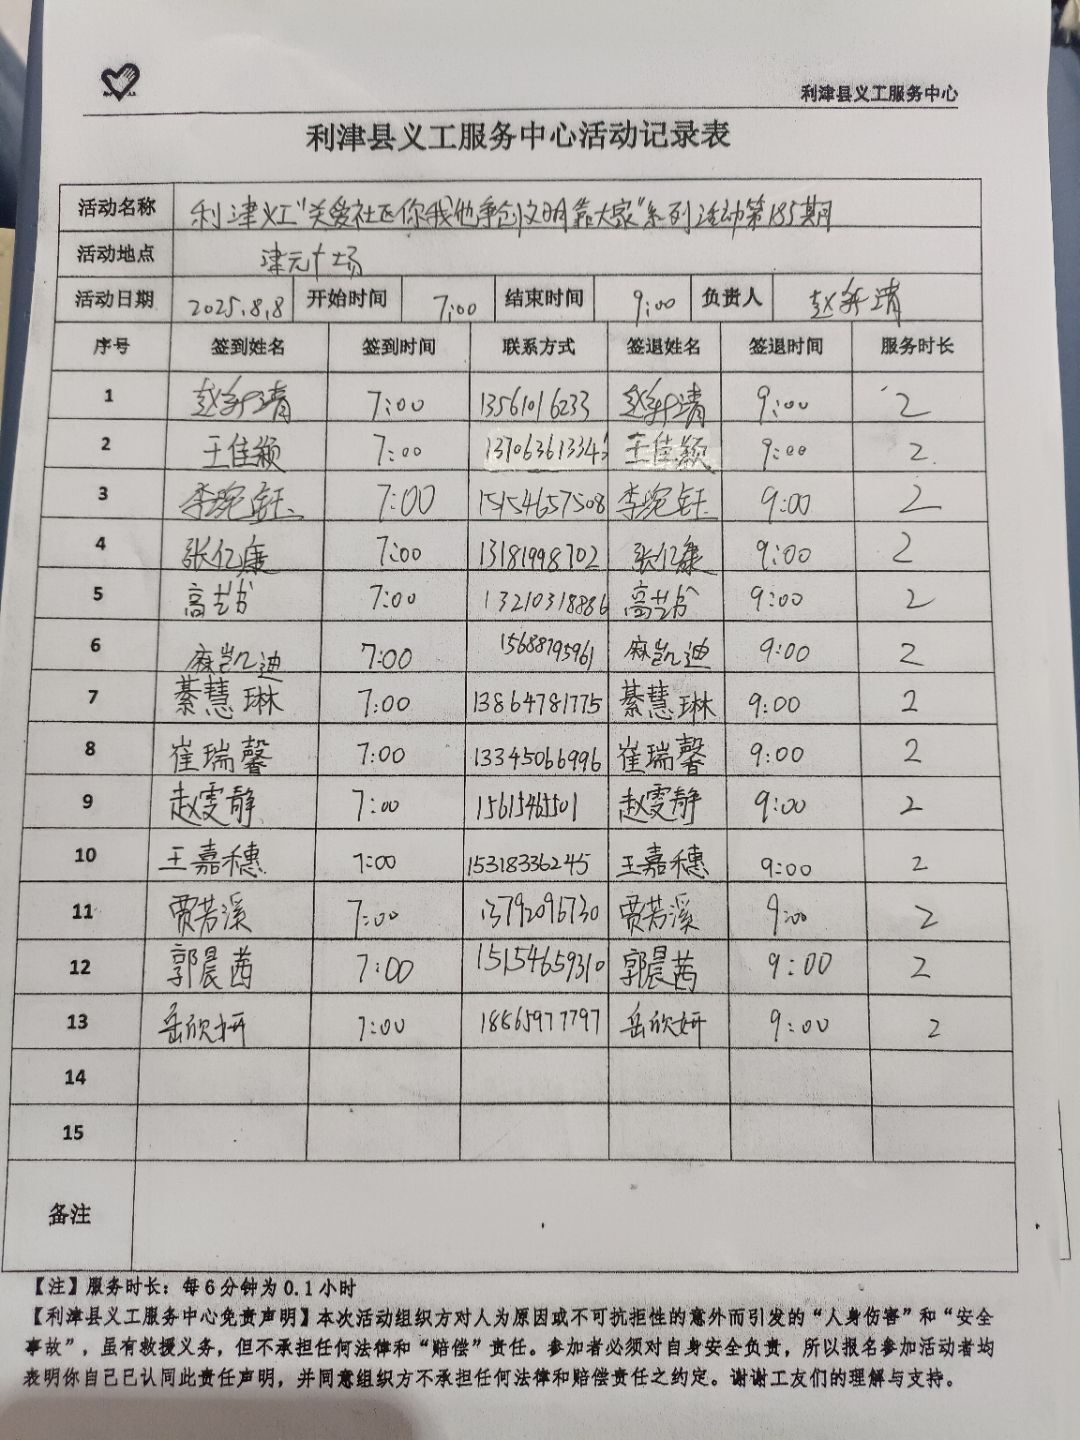 利津县义工服务中心
利津县义工服务中心活动记录表
活动名称 利津义工"关爱社区你我他争创文明靠大家"系列活动第185期
活动地点 津元广场
活动日期 2025.8.8 开始时间 7:00 结束时间 9:00 负责人 赵新靖
序号 签到姓名 签到时间 联系方式 签退姓名 签退时间 服务时长
1 赵新靖 7:00 13561016233 赵新靖 9:00 2
2 王佳颖 7:00 王佳颖 9:00 2
3 李琬钰 7:00 15154657508 李琬钰 9:00 2
4 张亿康 7:00 13181998702 张亿康 9:00 2
5 高艺 7:00 13210318886 高艺 9:00 2
6 麻凯迪 7:00 15688795961 麻凯迪 9:00 2
7 綦慧琳 7:00 13864781775 綦慧琳 9:00 2
8 崔瑞馨 7:00 13345066996 崔瑞馨 9:00 2
9 赵雯静 7:00 15615465501 赵雯静 9:00 2
10 王嘉穗 7:00 15318336245 王嘉穗 9:00 2
11 贾若溪 7:00 13792096730 贾若溪 9:00 2
12 郭晨茜 7:00 15154659310 郭晨茜 9:00 2
13 岳欣妍 7:00 18865977797 岳欣妍 9:00 2
14
15
备注
【注】服务时长：每6分钟为0.1小时
【利津县义工服务中心免责声明】本次活动组织方对人为原因或不可抗拒性的意外而引发的“人身伤害”和“安全
事故”，虽有救援义务，但不承担任何法律和“赔偿”责任。参加者必须对自身安全负责，所以报名参加活动者均
表明你自己已认同此责任声明，并同意组织方不承担任何法律和赔偿责任之约定。谢谢工友们的理解与支持。